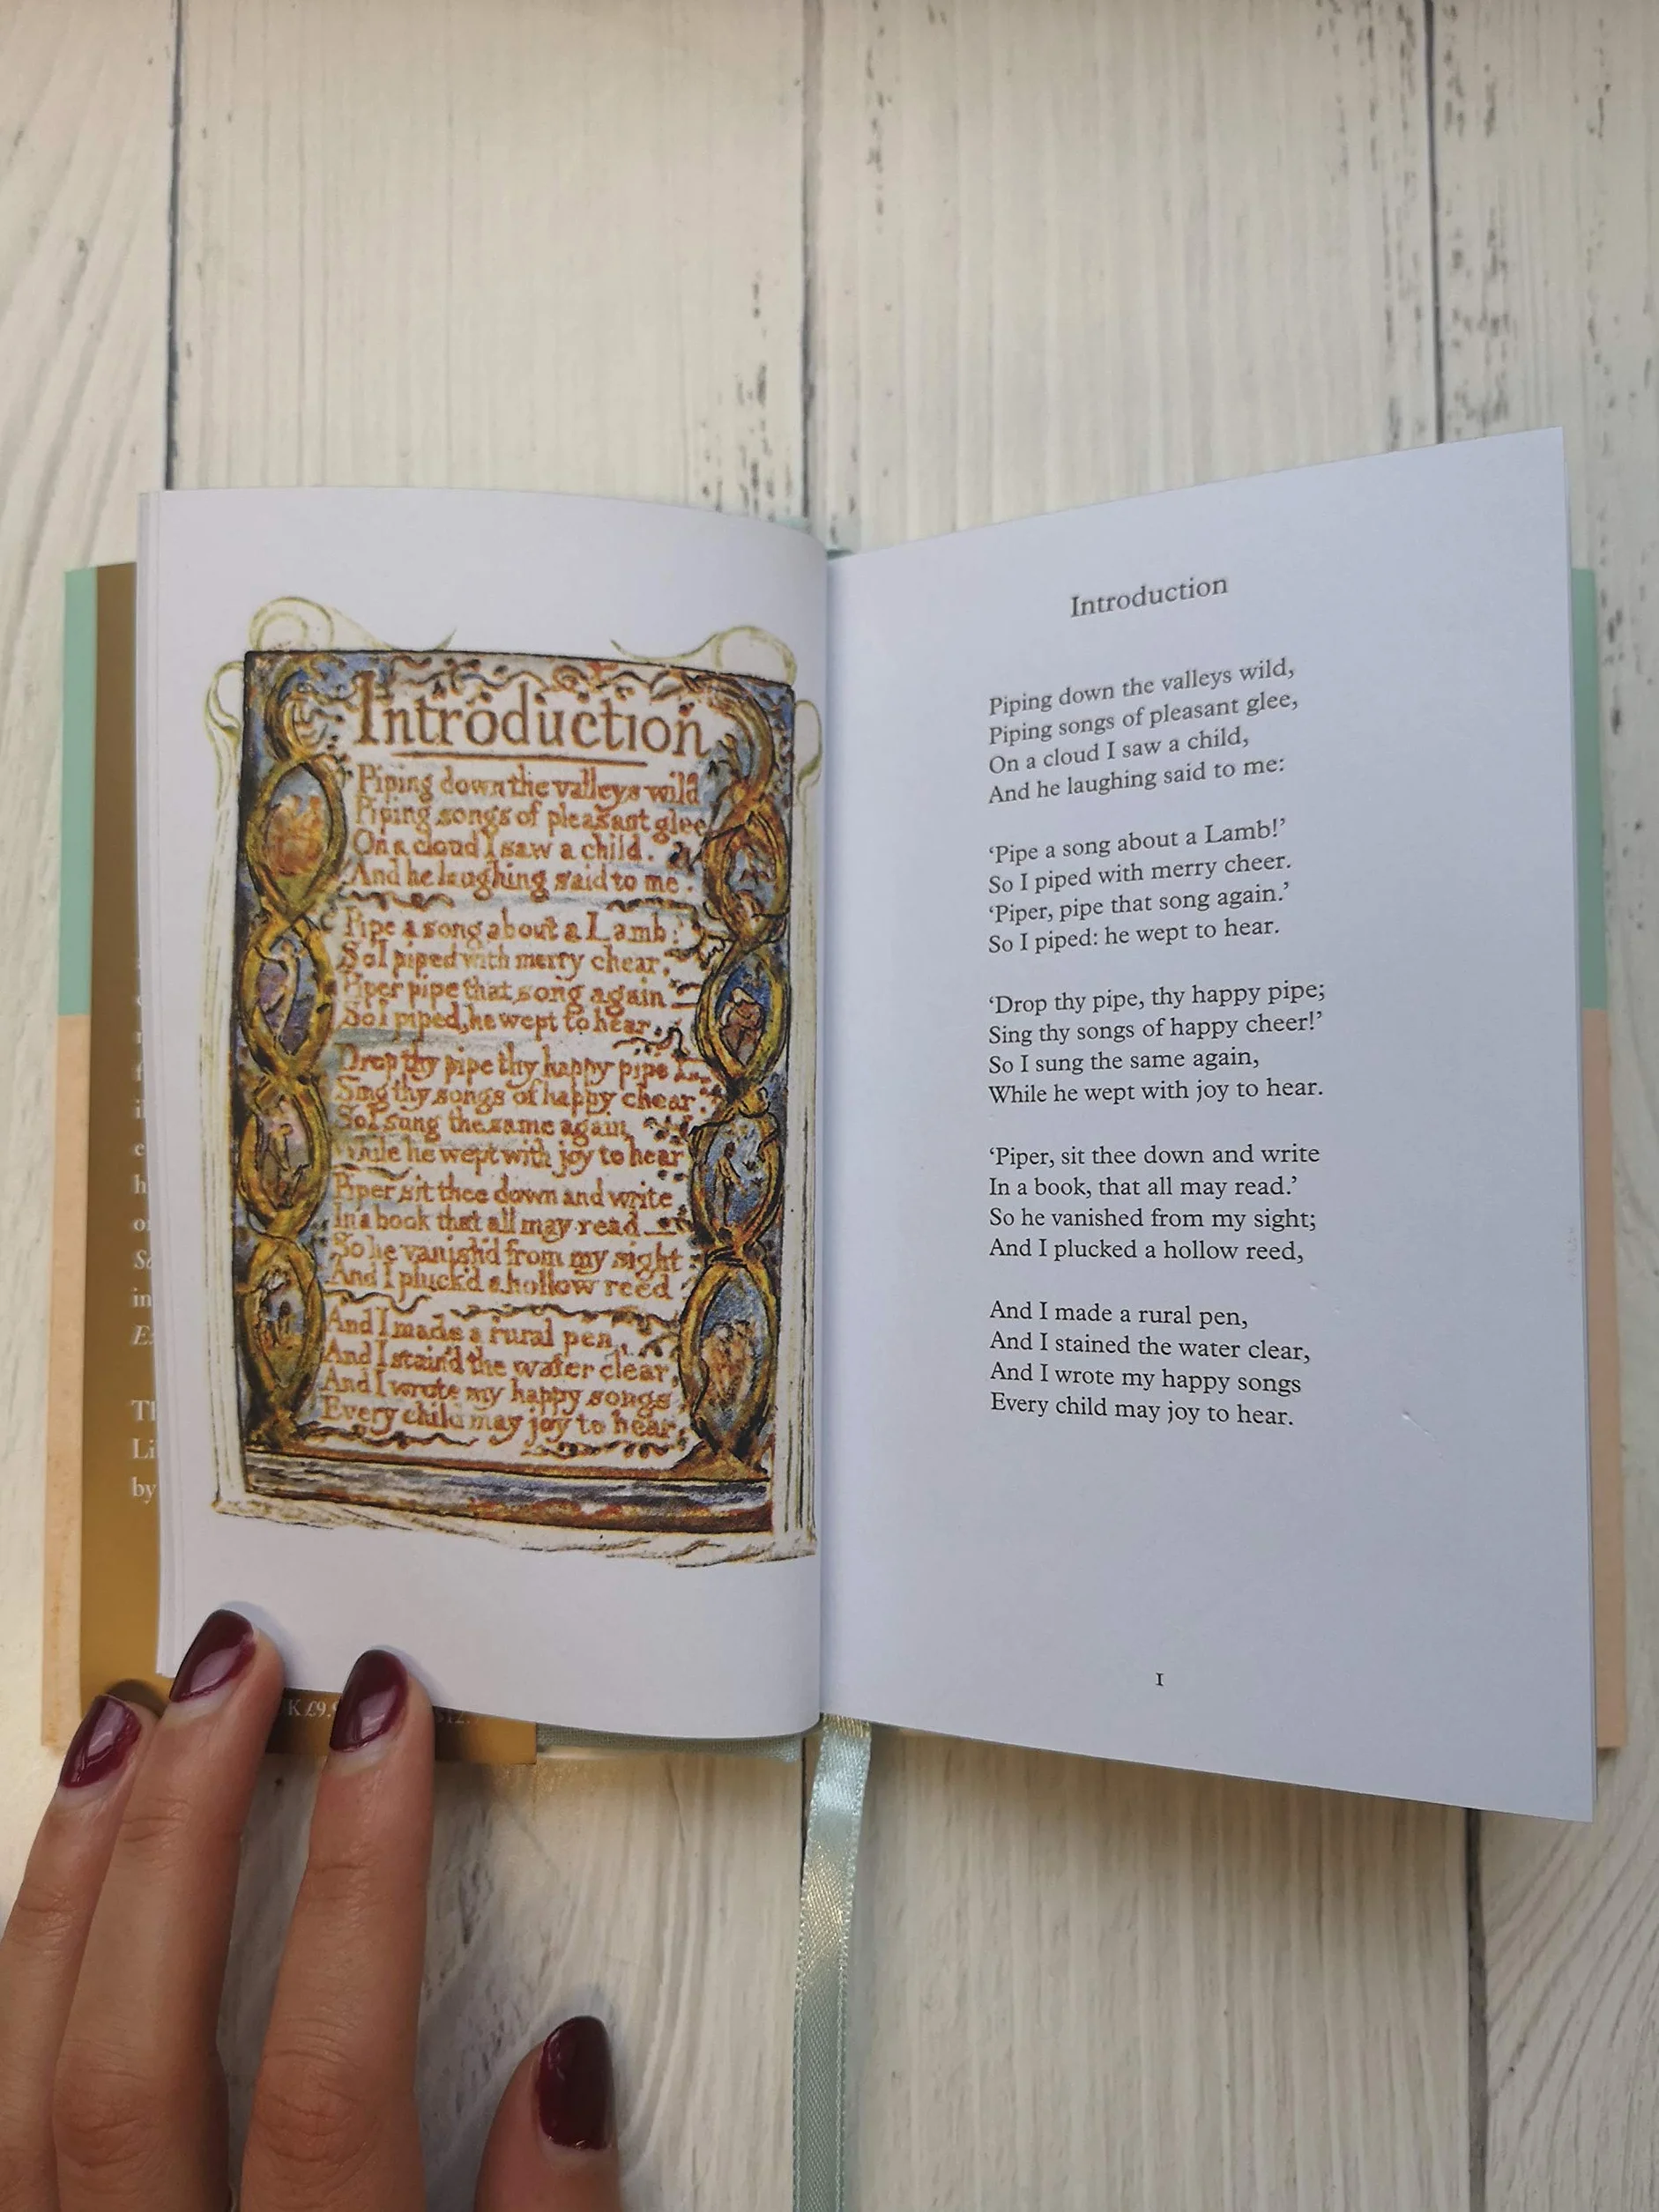 Introduction
Piping down the valleys wild
Piping songs of pleasant glee
On a cloud I saw a child.
And he laughing said to me.
Pipe a song about a Lamb:
So I piped with merry chear,
Piper pipe that song again
So I piped, he wept to hear.
Drop thy pipe thy happy pipe
Sing thy songs of happy chear
So I sung the same again
While he wept with joy to hear
Piper sit thee down and write
In a book that all may read
So he vanish'd from my sight
And I pluck'd a hollow reed
And I made a rural pen,
And I stain'd the water clear,
And I wrote my happy songs
Every child may joy to hear
K £9.9
Introduction
Piping down the valleys wild,
Piping songs of pleasant glee,
On a cloud I saw a child,
And he laughing said to me:
‘Pipe a song about a Lamb!’
So I piped with merry cheer.
‘Piper, pipe that song again.’
So I piped: he wept to hear.
‘Drop thy pipe, thy happy pipe;
Sing thy songs of happy cheer!’
So I sung the same again,
While he wept with joy to hear.
‘Piper, sit thee down and write
In a book, that all may read.’
So he vanished from my sight;
And I plucked a hollow reed,
And I made a rural pen,
And I stained the water clear,
And I wrote my happy songs
Every child may joy to hear.
1